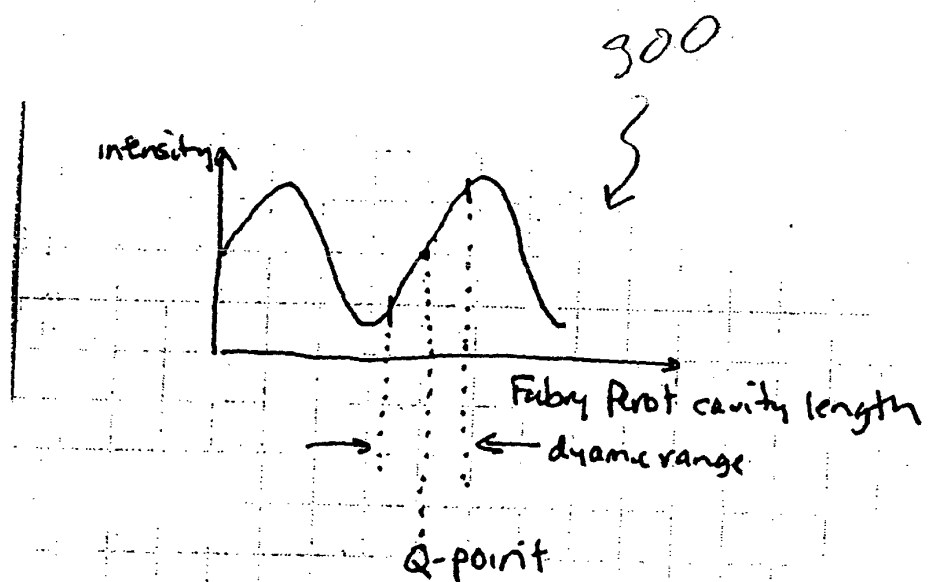 900
intensity
Fabry Perot cavity length
dyamic range
Q-point